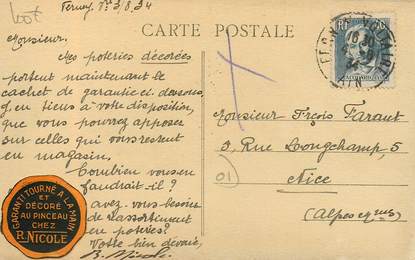 Ferney, le 3/8.34
CARTE POSTALE
Monsieur.
Mes poteries décorées
portent maintenant le
cachet de garantie ci-dessous,
j'en tiens à votre disposition,
que vous pourrez apposer
sur celles qui vous restent
en magasin.
Combien vous en
faudrait-il ?
avez-vous besoin
de l'assortiment
en poteries ?
Votre bien dévoué,
R. Nicole
GARANTI TOURNÉ A LA MAIN
ET
DÉCORÉ
AU PINCEAU
CHEZ
R. NICOLE
FERNEY VOLTAIRE
AIN
Monsieur Fçois Faraut
3, Rue Longchamp, 5
Nice
(Alpes mmes)
01